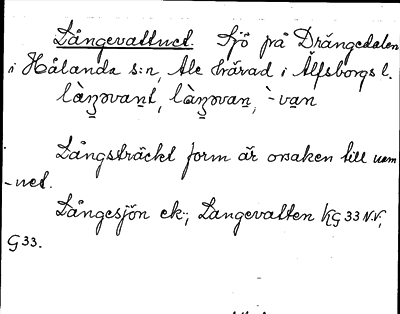 Långevattnet. Sjö på Drängedalen
i Hålanda s:n, Ale härad i Älfsborgs l.
làŋəvant, làŋəvan, `-van
Långsträckt form är orsaken till nam-
-net.
Långesjön ek.; Langevatten KG 33 N.V,
G 33.